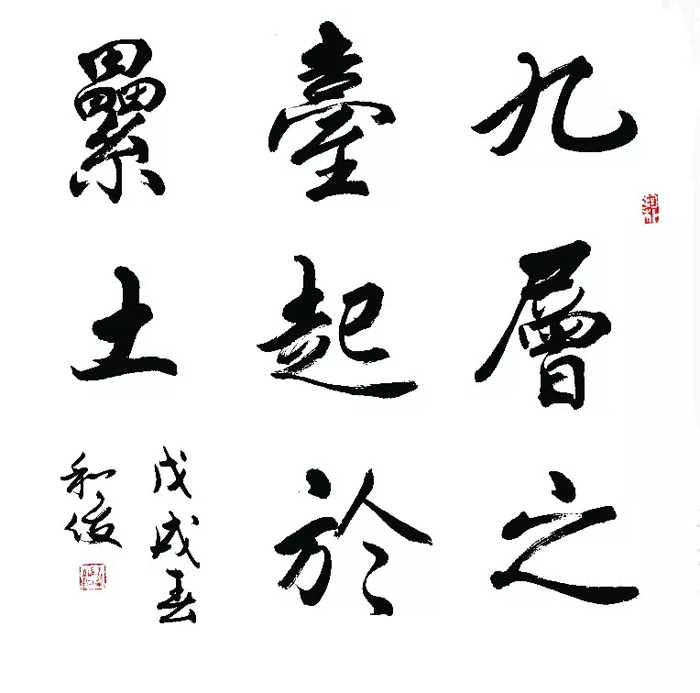 九層之
臺起於
纍土
戊戌春
和俊